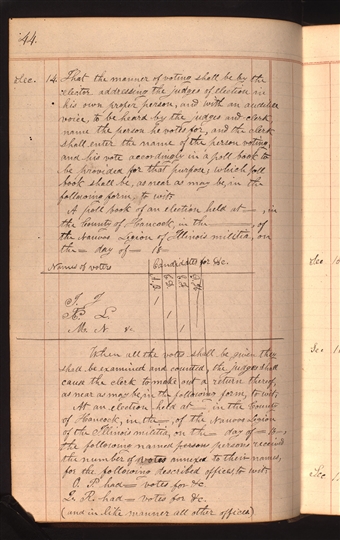 44.
Sec. 14. That the manner of voting shall be by the
elector addressing the judges of election in
his own proper person, and with an audible
voice, to be heard by the judges and clerk
name the person he votes for, and the clerk
shall enter the name of the person voting,
and his vote accordingly in a poll book to
be provided for that purpose; which poll
book shall be, as near as may be, in the
following form, to wit:
A poll book of an election held at — , in
the County of Hancock, in the — , of
the Nauvoo Legion of Illinois militia, on
the — day of — 18
Names of voters Candidates for &c.
1
1
M. N. &c 1
When all the votes shall be given they
shall be examined and counted, the judges shall
cause the clerk to make out a return thereof,
as near as may be, in the following form, to wit:
At an election held at — in the County
of Hancock, in the — , of the Nauvoo Legion
of the Illinois militia, on the — day of —
the following named persons received
the number of votes annexed to their names,
for the following described offices, to wit:
O. P. had — votes for &c.
Q. R. had — votes for &c.
(and in like manner all other offices)
Sec
Sec
Sec